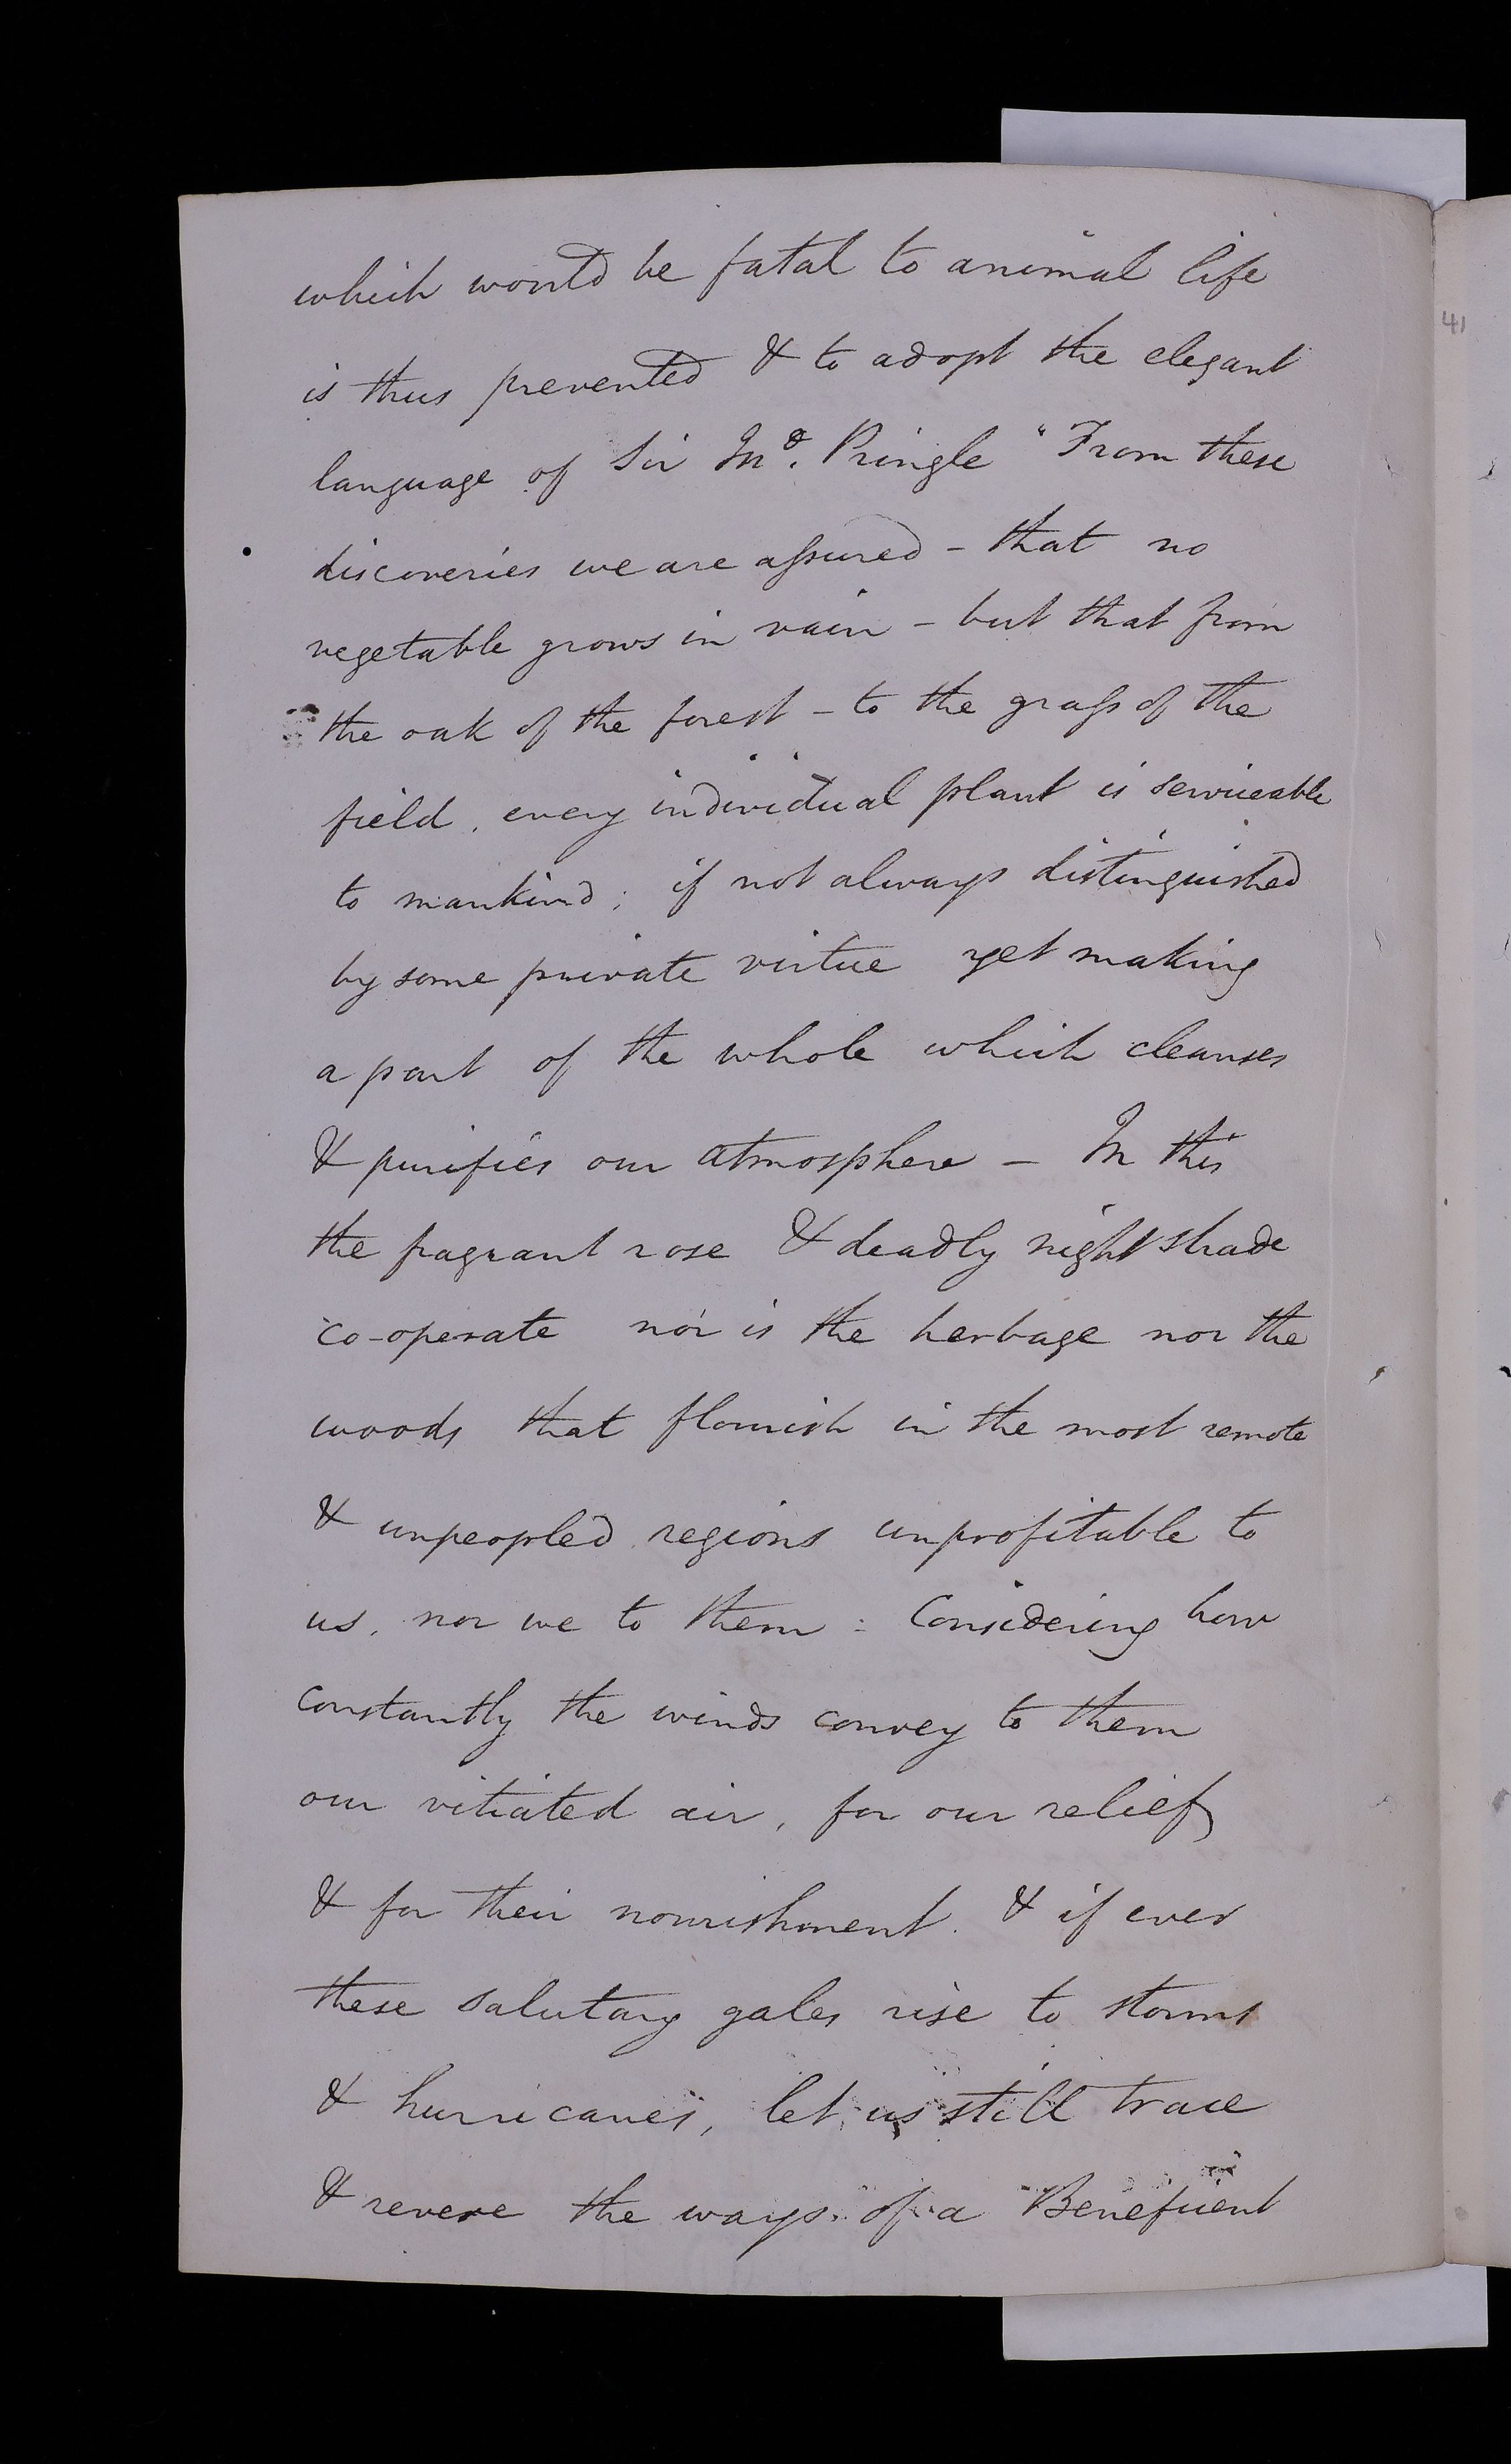 which would be fatal to animal life
is thus prevented & to adopt the elegant
language of Sir Jno. Pringle "From these
discoveries we are assured - that no
vegetable grows in vain - but that from
the oak of the forest - to the grass of the
field, every individual plant is serviceable
to mankind; if not always distinguished
by some private virtue yet making
a part of the whole which cleanses
& purifies our atmosphere - In this
the fragrant rose & deadly night shade
co-operate nor is the herbage nor the
woods that flourish in the most remote
& unpeopled regions unprofitable to
us, nor we to them: Considering how
constantly the winds convey to them
our vitiated air, for our relief
& for their nourishment. & if ever
these salutary gales rise to storms
& hurricanes, let us still trace
& revere the ways of a Beneficent
41